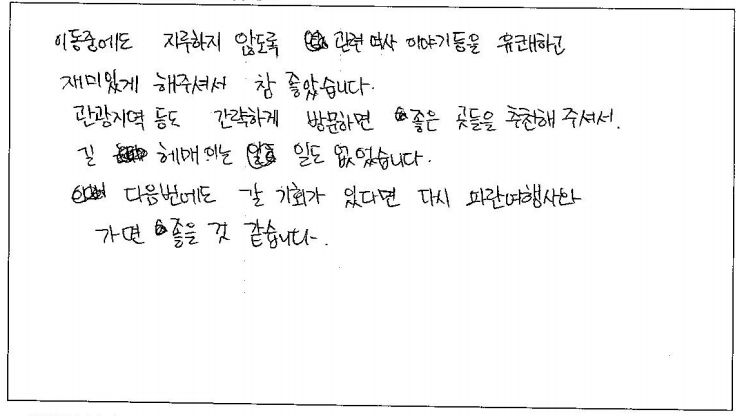 이동중에도 지루하지 않도록 관련 역사 이야기등을 유쾌하고
재미있게 해주셔서 참 좋았습니다.
관광지역 등도 간략하게 방문하면 좋은 곳들을 추천해 주셔서.
길 헤매이는 일도 없었습니다.
다음번에도 갈 기회가 있다면 다시 파란여행사와
가면 좋을 것 같습니다.